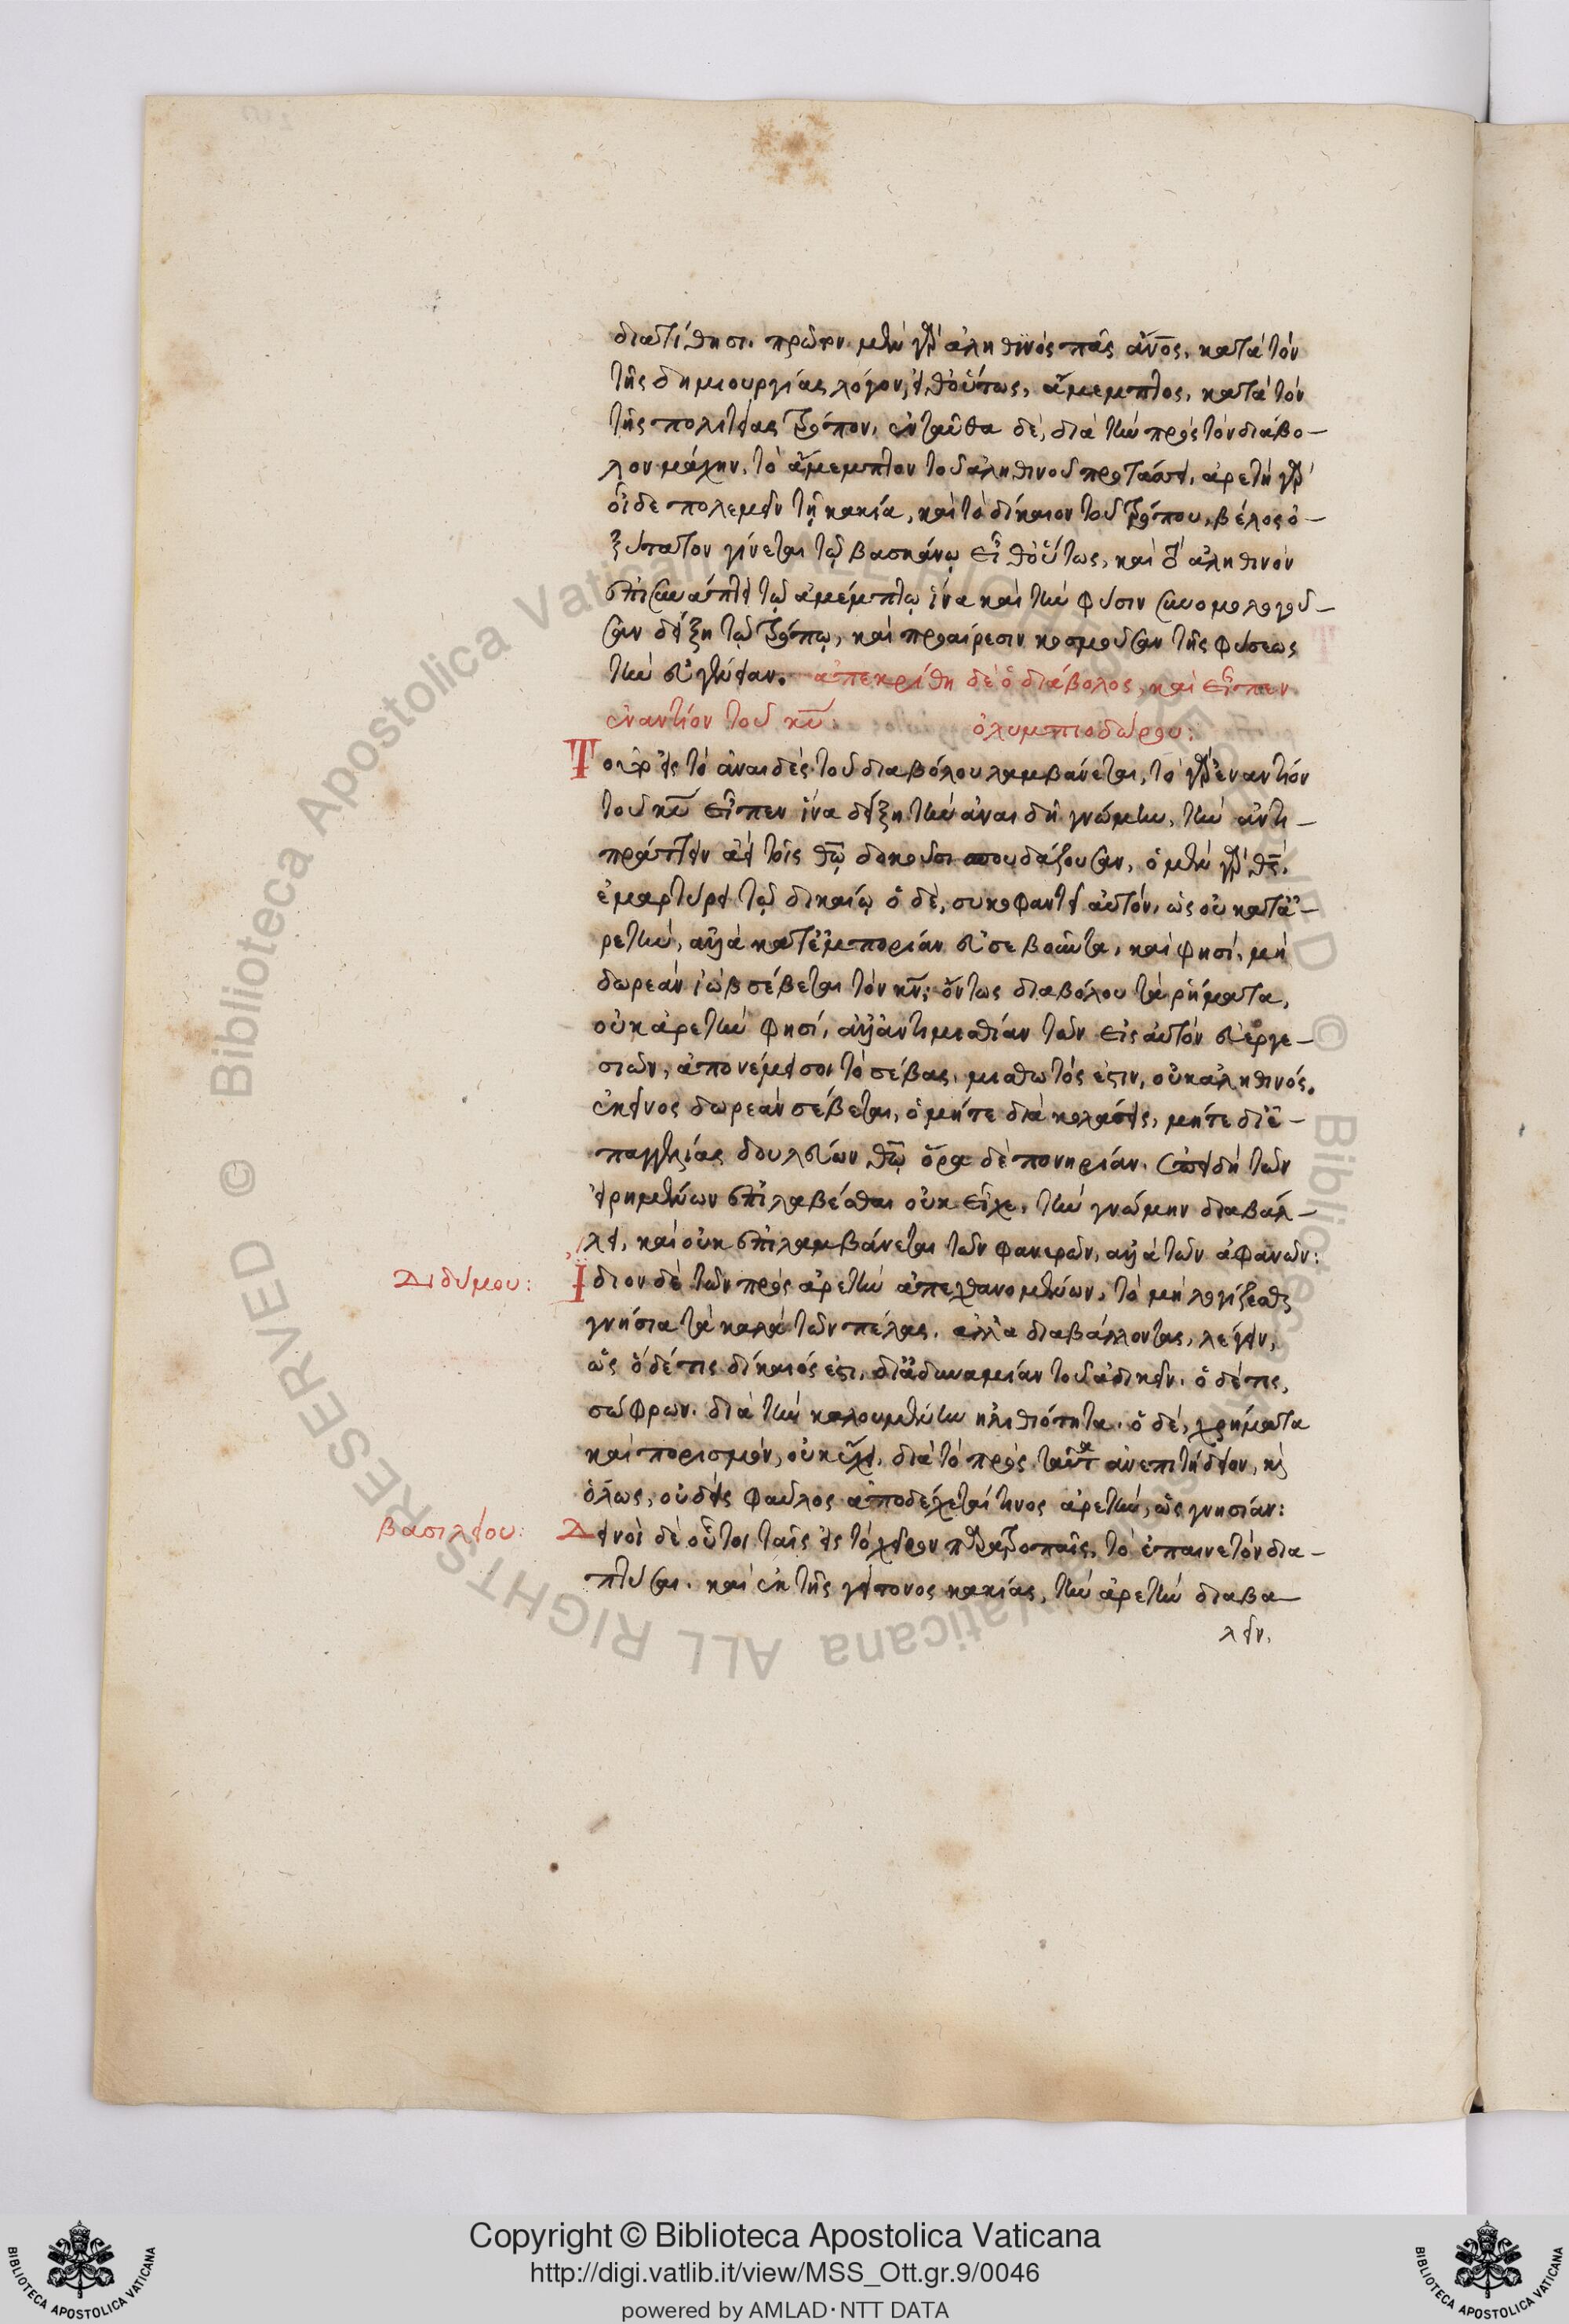 διατίθησι. πρῶτον μὲν γὰρ ἀληθινὸς πᾶς ἄνος, κατὰ τὸν
τῆς δημιουργίας λόγον, εἶθ᾽ οὕτως, ἄμεμπτος, κατὰ τὸν
τῆς πολιτείας τρόπον, ἐνταῦθα δὲ, διὰ τὴν πρὸς τὸν διάβο-
λον μάχην, τὸ ἄμεμπτον τοῦ ἀληθινοῦ προτάσσει, ἀρετὴ γὰρ
οἶδε πολεμεῖν τῇ κακίᾳ, καὶ τὸ δίκαιον τοῦ τρόπου, βέλος ὀ-
ξύτατον γίνεται τῷ βασκάνῳ εἶθ᾽ οὕτως, καὶ τὸ ἀληθινὸν
ἐπισυνάπτει τῷ ἀμέμπτῳ ἵνα καὶ τὴν φύσιν συνομολογοῦ-
σαν δείξῃ τῷ τρόπῳ, καὶ προαίρεσιν κοσμοῦσαν τῆς φύσεως
τὴν εὐγένειαν. ἀπεκρίθη δὲ ὁ διάβολος, καὶ εἶπεν
ἐναντίον τοῦ κυ: ὀλυμπιοδώρου:
Τοῦτο εἰς τὸ ἀναιδὲς τοῦ διαβόλου λαμβάνεται, τὸ γὰρ ἐναντίον
τοῦ κυ εἶπεν ἵνα δείξῃ τὴν ἀναιδῆ γνώμην, τὴν ἀντι-
πράττειν ἀεὶ τοῖς θῶ δοκοῦσι σπουδάζουσαν, ὁ μὲν γὰρ θς,
ἐμαρτύρει τῷ δικαίῳ ὁ δὲ, συκοφαντεῖ αὐτόν, ὡς οὐ κατὰ ἀ-
ρετὴν, ἀλλὰ κατ᾽ ἐμπορίαν εὐσεβοῦντα, καὶ φησί, μὴ
δωρεὰν ἰὼβ σέβεται τὸν κν; ὄντως διαβόλου τὰ ῥήματα,
οὐκ ἀρετὴν φησί, ἀλλ᾽ ἀντιμισθίαν τῶν εἰς αὐτὸν εὐεργε-
σιῶν, ἀπονέμει σοι τὸ σέβας, μισθωτός ἐστιν, οὐκ ἀληθινός.
ἐκεῖνος δωρεὰν σέβεται, ὁ μήτε διὰ κολάσεις, μήτε δι᾽ ἐ-
παγγελίας δουλεύων θῶ ὅρα δὲ πονηρίαν. ἐπειδὴ τῶν
εἰρημένων ἐπιλαβέσθαι οὐκ εἶχε, τὴν γνώμην διαβάλ-
λει, καὶ οὐκ ἐπιλαμβάνεται τῶν φανερῶν, ἀλλὰ τῶν ἀφανῶν:
Διδύμου: Ἴδιον δὲ τῶν πρὸς ἀρετὴν ἀπεχθανομένων, τὸ μὴ λογίζεσθαι
γνήσια τὰ καλὰ τῶν πέλας, ἀλλὰ διαβάλλοντας, λέγειν,
ὡς ὁ δέ τις δίκαιός ἐστι, δι᾽ ἀδυναμίαν τοῦ ἀδικεῖν. ὁ δέ τις,
σώφρων. διὰ τὴν καλουμένην ἠλιθιότητα. ὁ δὲ, χρήματα
καὶ πορισμὸν, οὐκ ἔχει, διὰ τὸ πρὸς ταῦτα ἀνεπιτήδειον, καὶ
ὅλως, οὐδεὶς φαῦλος ἀποδέχεταί τινος ἀρετὴν, ὡς γνησίαν:
βασιλείου: Δεινοὶ δὲ οὗτοι ταῖς εἰς τὸ χεῖρον παρατροπαῖς, τὸ ἐπαινετὸν δια-
πτύσαι. καὶ ἐκ τῆς γείτονος κακίας, τὴν ἀρετὴν διαβα-
λεῖν.
Copyright © Biblioteca Apostolica Vaticana
http://digi.vatlib.it/view/MSS_Ott.gr.9/0046
powered by AMLAD·NTT DATA